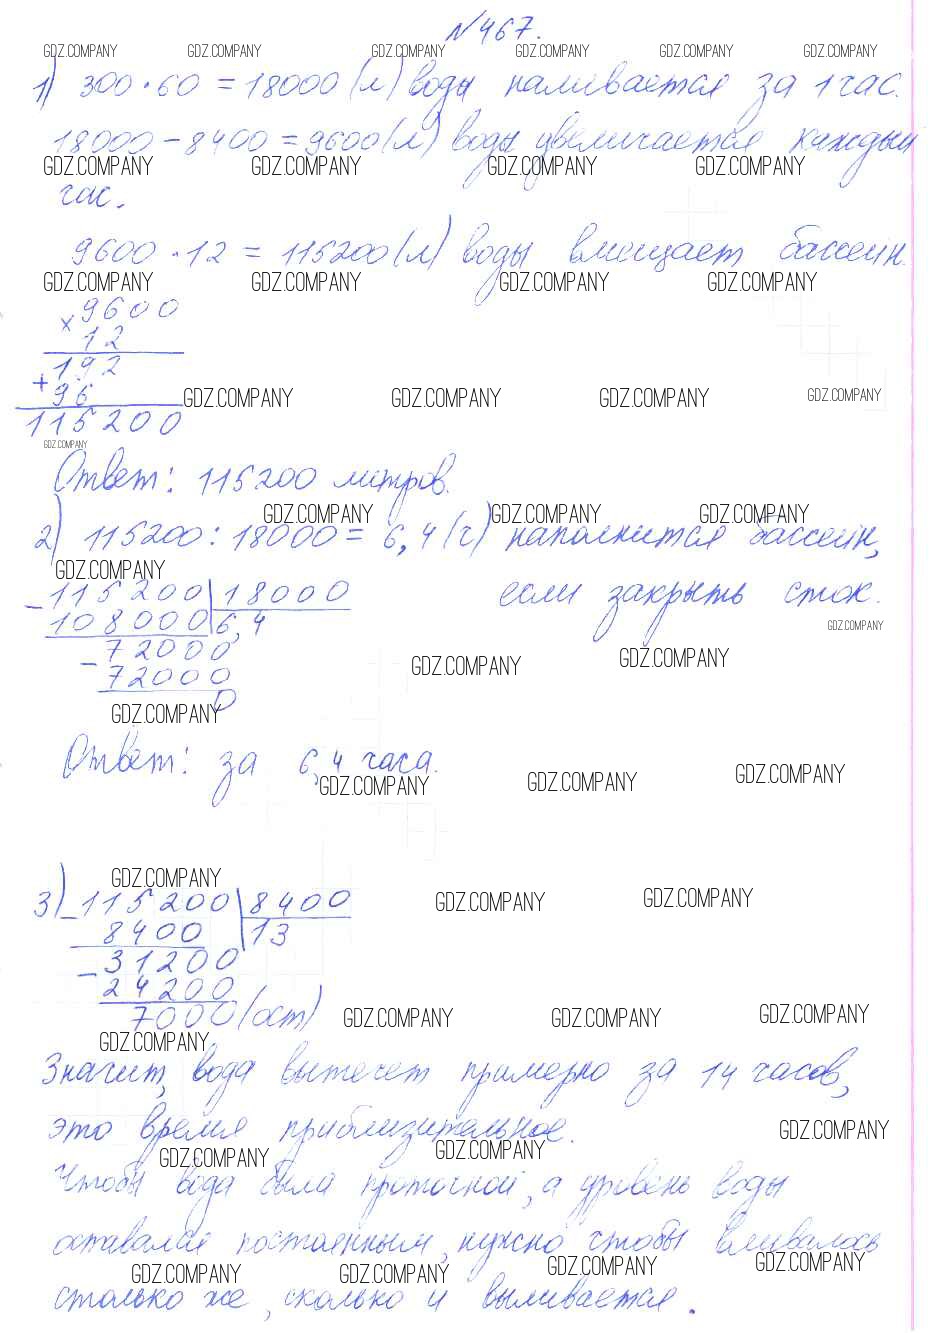 №467.
GDZ.COMPANY GDZ.COMPANY GDZ.COMPANY GDZ.COMPANY GDZ.COMPANY GDZ.COMPANY
1) 300 · 60 = 18000 (л) воды наливается за 1 час.
18000 - 8400 = 9600 (л) воды увеличается каждый
GDZ.COMPANY GDZ.COMPANY GDZ.COMPANY GDZ.COMPANY
час.
9600 · 12 = 115200 (л) воды вмещает бассейн.
GDZ.COMPANY GDZ.COMPANY GDZ.COMPANY GDZ.COMPANY
× 9600
12
192
+ 96
GDZ.COMPANY GDZ.COMPANY GDZ.COMPANY GDZ.COMPANY
115200
GDZ.COMPANY
Ответ: 115200 литров.
GDZ.COMPANY GDZ.COMPANY GDZ.COMPANY
2) 115200 : 18000 = 6,4 (ч) наполнится бассейн,
GDZ.COMPANY
если закрыть сток.
- 115200 | 18000
108000 | 6,4
GDZ.COMPANY
- 72000
GDZ.COMPANY GDZ.COMPANY
72000
0
GDZ.COMPANY
Ответ: за 6,4 часа.
GDZ.COMPANY GDZ.COMPANY GDZ.COMPANY
GDZ.COMPANY
3) - 115200 | 8400
GDZ.COMPANY GDZ.COMPANY
8400 | 13
- 31200
24200
7000 (ост)
GDZ.COMPANY GDZ.COMPANY GDZ.COMPANY
GDZ.COMPANY
Значит, вода вытечет примерно за 14 часов,
это время приблизительное.
GDZ.COMPANY
GDZ.COMPANY GDZ.COMPANY
Чтобы вода была проточной, а уровень воды
оставался постоянным, нужно чтобы вливалось
GDZ.COMPANY GDZ.COMPANY GDZ.COMPANY GDZ.COMPANY
столько же, сколько и выливается.